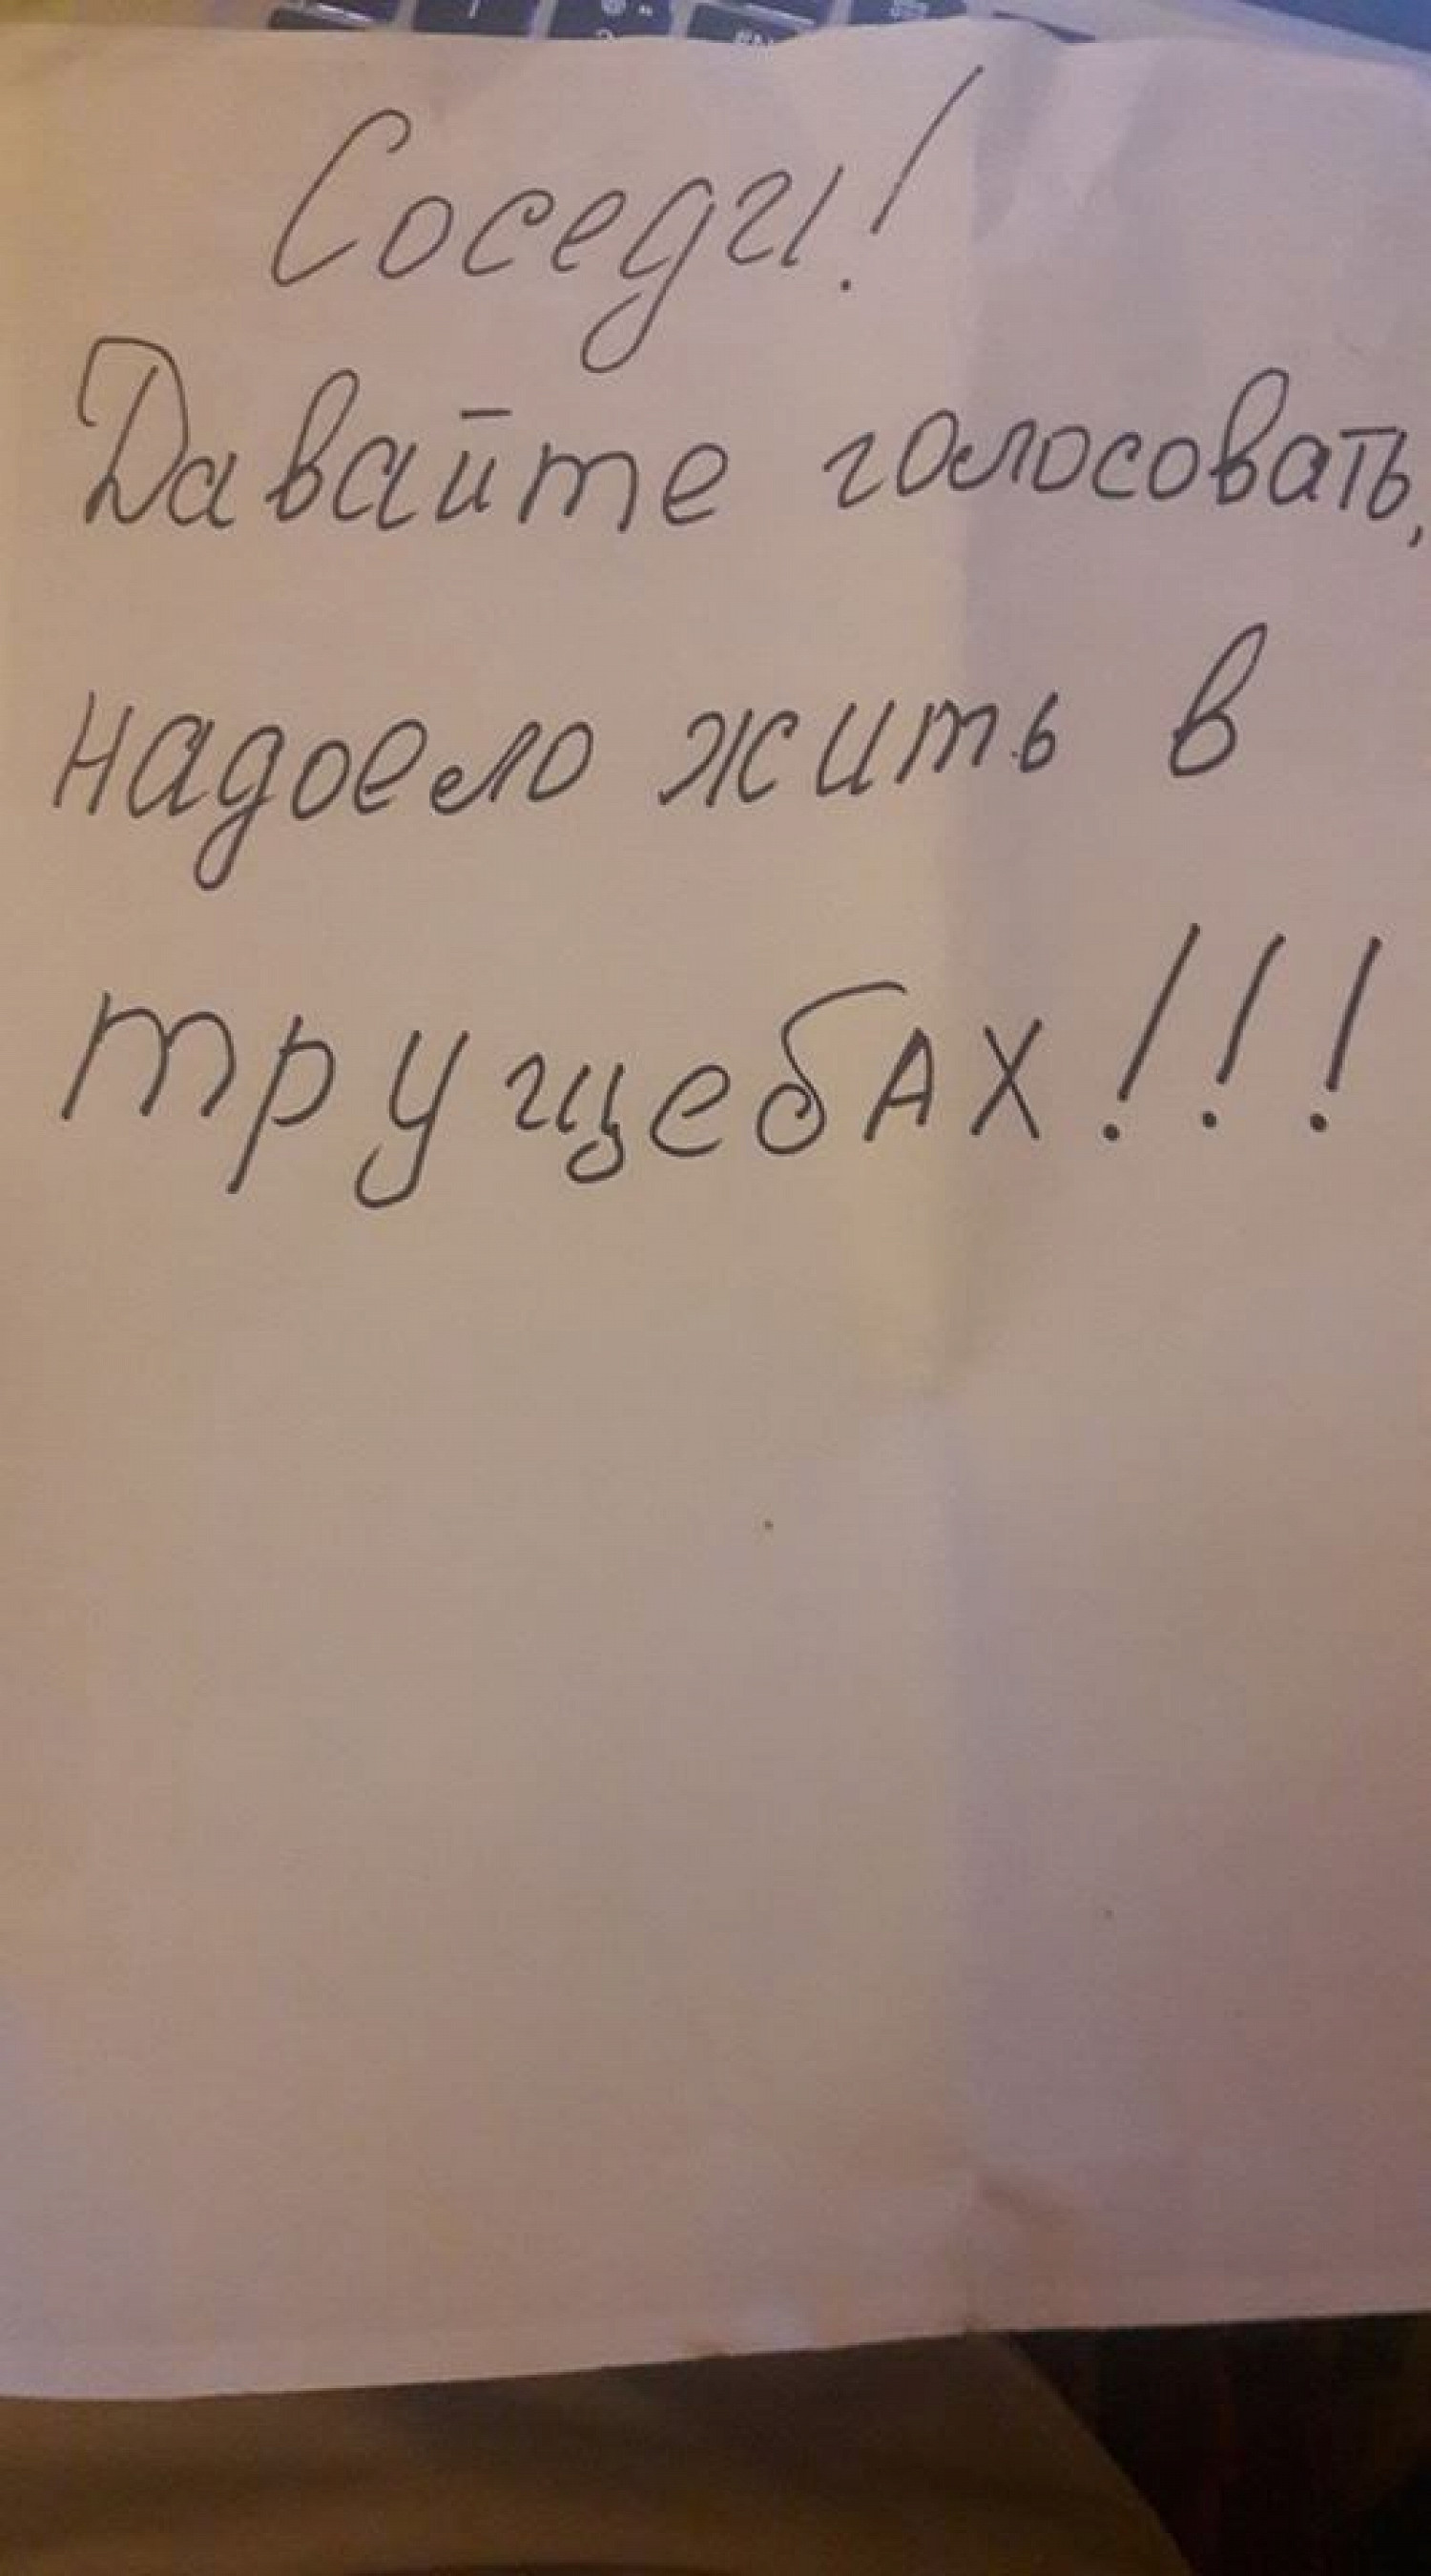 Соседи!
Давайте голосовать,
надоело жить в
трущебАХ!!!